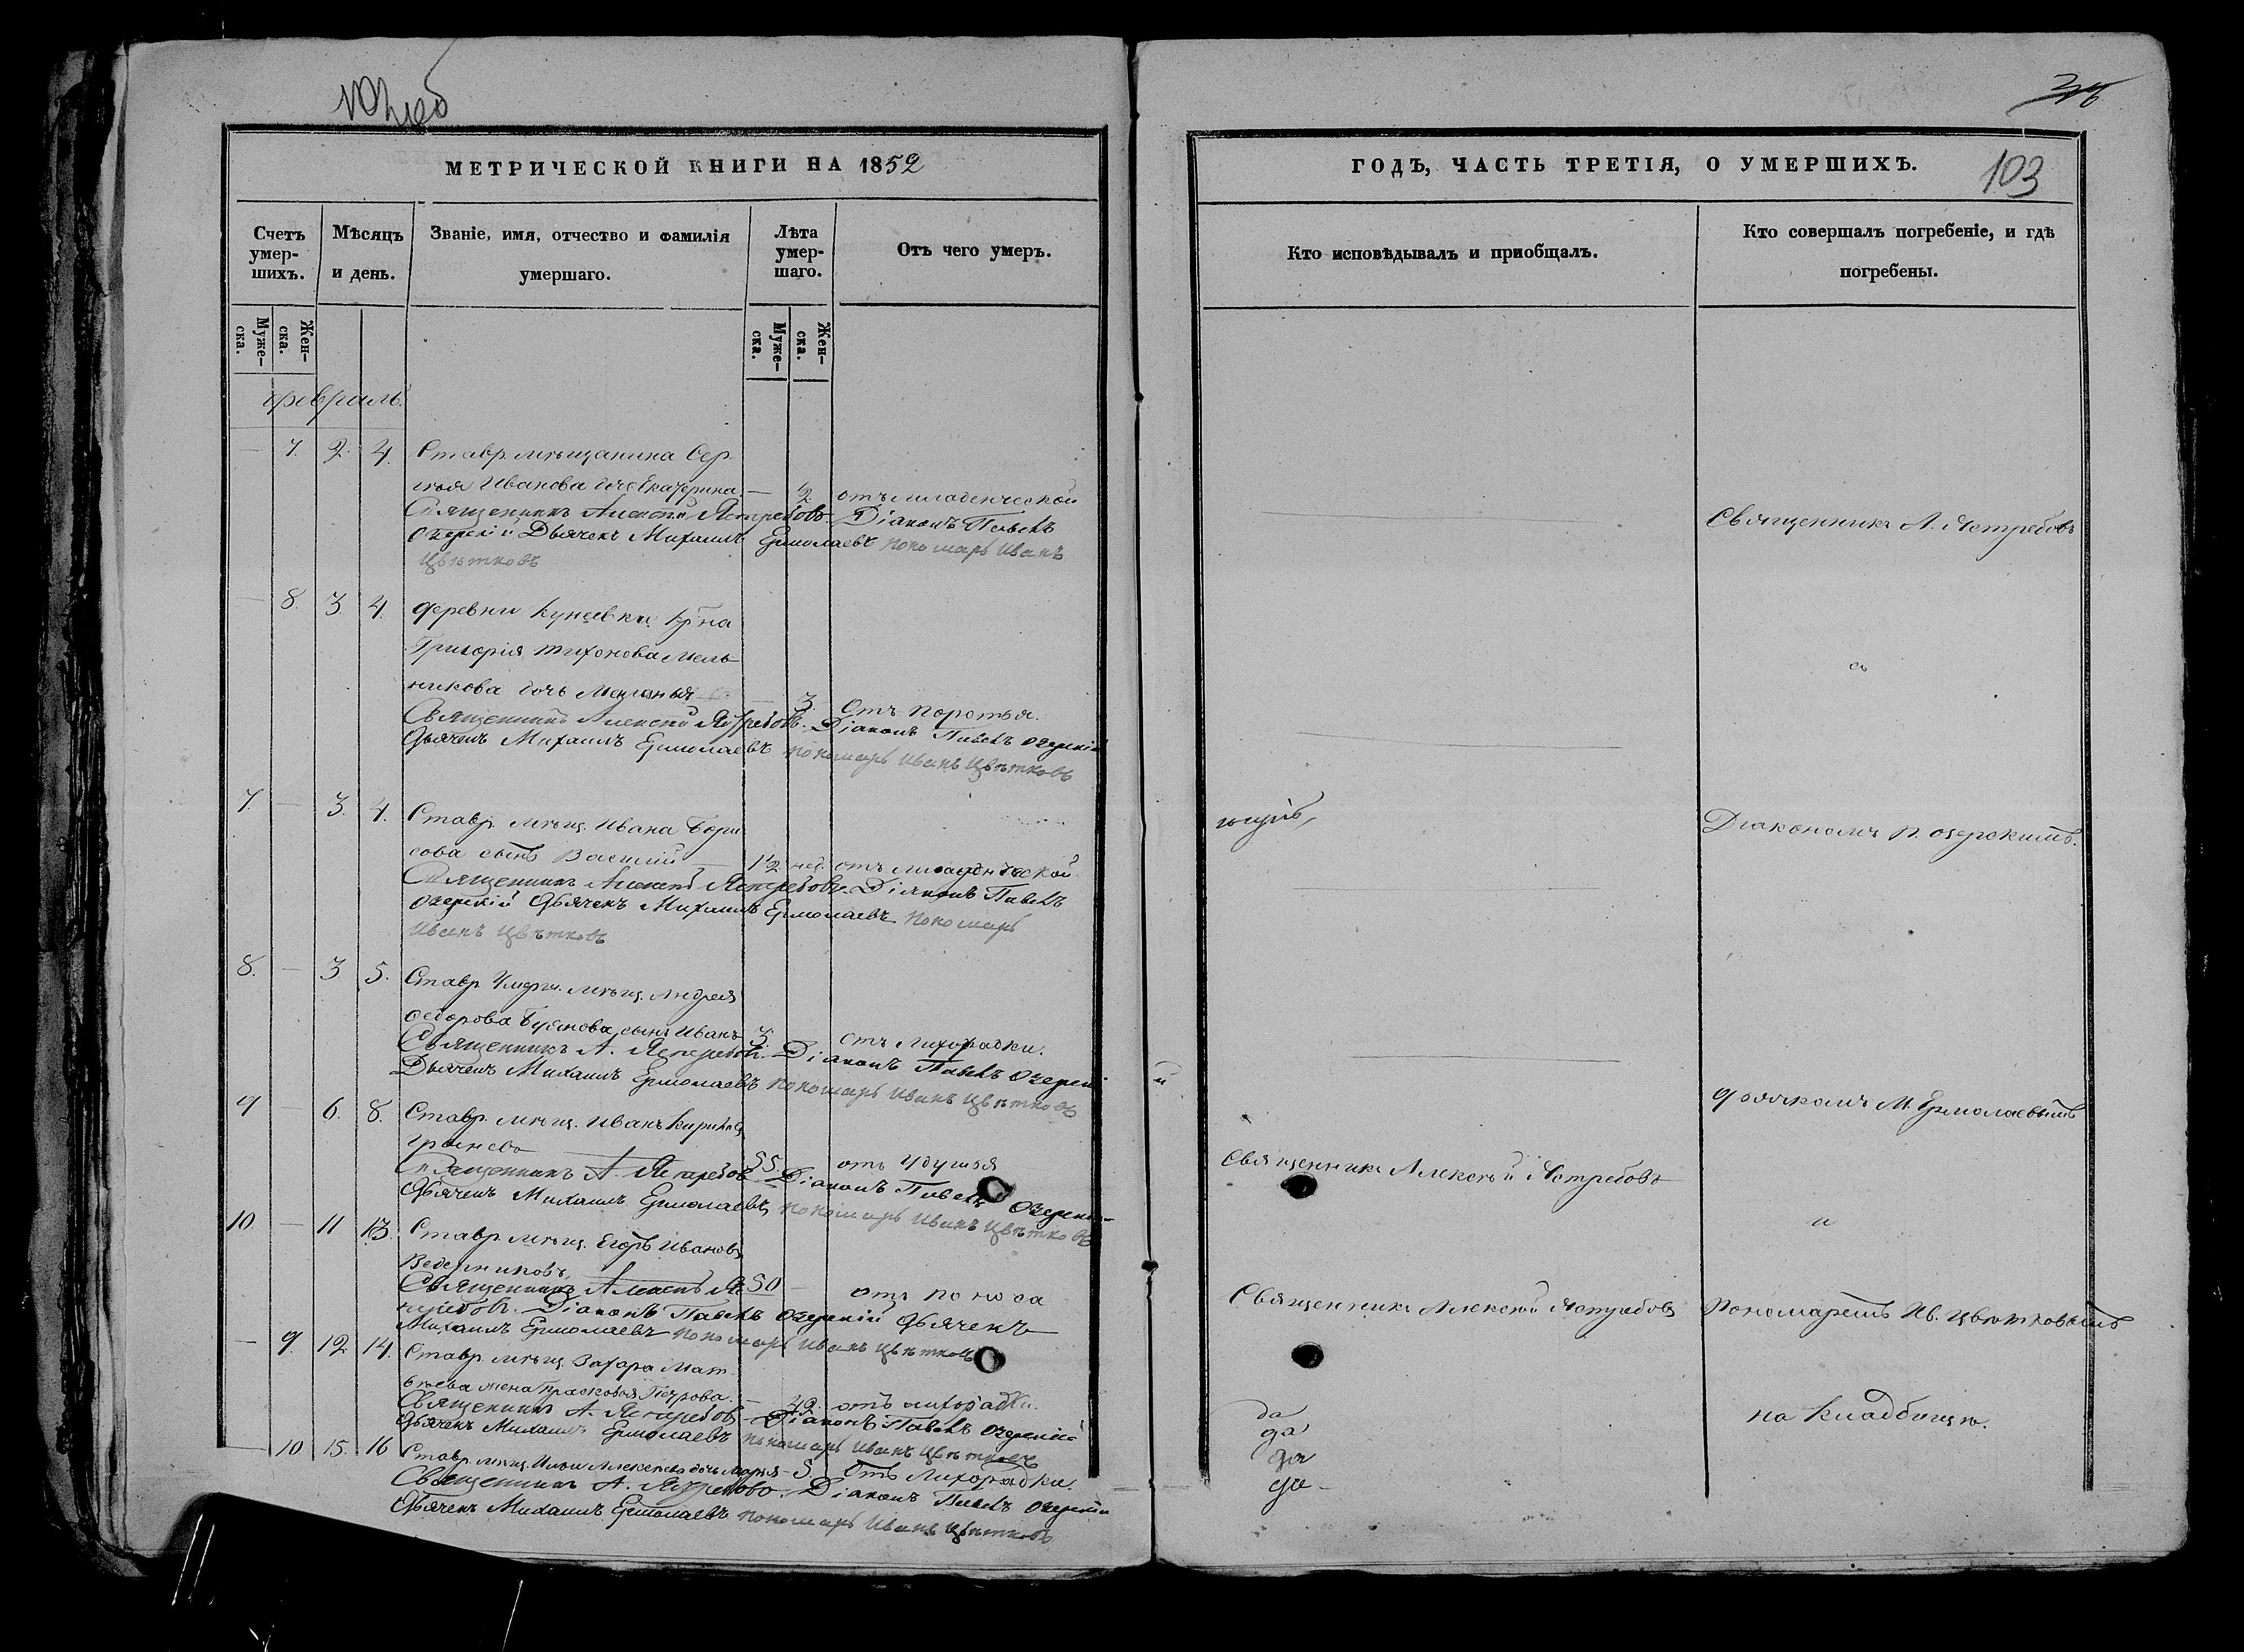 103
МЕТРИЧЕСКОЙ КНИГИ НА 1852
ГОДЪ, ЧАСТЬ ТРЕТІЯ, О УМЕРШИХЪ.
Счетъ умер-
шихъ.
Муже-
ска.
Жен-
ска.
Мѣсяцъ
и день.
Званіе, имя, отчество и фамилія
умершаго.
Лѣта
умер-
шаго.
Муже-
ска.
Жен-
ска.
Отъ чего умеръ.
Кто исповѣдывалъ и приобщалъ.
Кто совершалъ погребеніе, и гдѣ
погребены.
февраль
— 7. 2. 4. Ставр. мѣщанина Сер-
гѣя Иванова дочь Екатерина. — 2 отъ младенческой
Священникъ Алексѣй Ястребовъ. Діаконъ Павелъ
Озерскій Дьячекъ Михаилъ Ермолаевъ Пономарь Иванъ
Цвѣтковъ
Священникъ А. Ястребовъ
— 8. 3. 4. деревни Кунеевки кр-на
Григорія Тихонова Мель-
никова дочь Меланья — 3. Отъ поротья.
Священникъ Алексѣй Ястребовъ. Діаконъ Павелъ Озерскій
Дьячекъ Михаилъ Ермолаевъ пономарь Иванъ Цвѣтковъ
7. — 3. 4. Ставр. мѣщ. Ивана Бори
сова сынъ Василій — 1½ нед. отъ младенческой
Священникъ Алексѣй Ястребовъ. Діаконъ Павелъ
Озерскій Дьячекъ Михаилъ Ермолаевъ Пономарь
Иванъ Цвѣтковъ
Діакономъ П. Озерскимъ.
8. — 3. 5. Ставр. мѣщ. Андрея
Ѳедорова сынъ Иванъ 3. Отъ лихорадки.
Священникъ А. Ястребовъ. Діаконъ Павелъ Озерскі
й
Дьячекъ Михаилъ Ермолаевъ пономарь Иванъ Цвѣтковъ
дьячкомъ М. Ермолаевымъ
9 — 6. 8. Ставр. мѣщ. Иванъ
55. отъ удушья
Священникъ А. Ястребовъ Діаконъ Павелъ Озерскі-
Дьячекъ Михаилъ Ермолаевъ пономарь Иванъ Цвѣтковъ
Священникъ Алексѣй Ястребовъ
10. — 11 13. Ставр. мѣщ. Егоръ Ивановъ
Ведерниковъ 50 — отъ поноса
Священникъ Алексѣй Яс
требовъ. Діаконъ Павелъ Озерскій Дьячекъ
Михаилъ Ермолаевъ пономарь Иванъ Цвѣтковъ
Священникъ Алексѣй Ястребовъ
Пономаремъ Ив. Цвѣтковымъ
— 9. 12. 14. Ставр. мѣщ. Захара Мат-
вѣева жена Прасковья Петрова. — 42. отъ лихорадки.
Священникъ А. Ястребовъ — Діаконъ Павелъ Озерскій
Дьячекъ Михаилъ Ермолаевъ пономарь Иванъ Цвѣтковъ
да
да
да
да
на кладбищѣ.
— 10 15. 16 Ставр. мѣщ. Ильи Алексѣева дочь Марья — 5. Отъ Лихорадки.
Священникъ А. Ястребовъ. Діаконъ Павелъ Озерскій
Дьячекъ Михаилъ Ермолаевъ пономарь Иванъ Цвѣтковъ